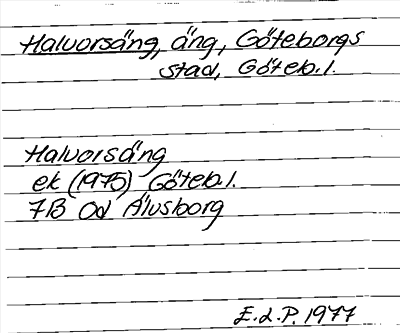 Halvorsäng, äng, Göteborgs
stad, Göteb. l.
Halvorsäng
ek (1975) Göteb. l.
7B Od Älvsborg
E.L.P. 1977